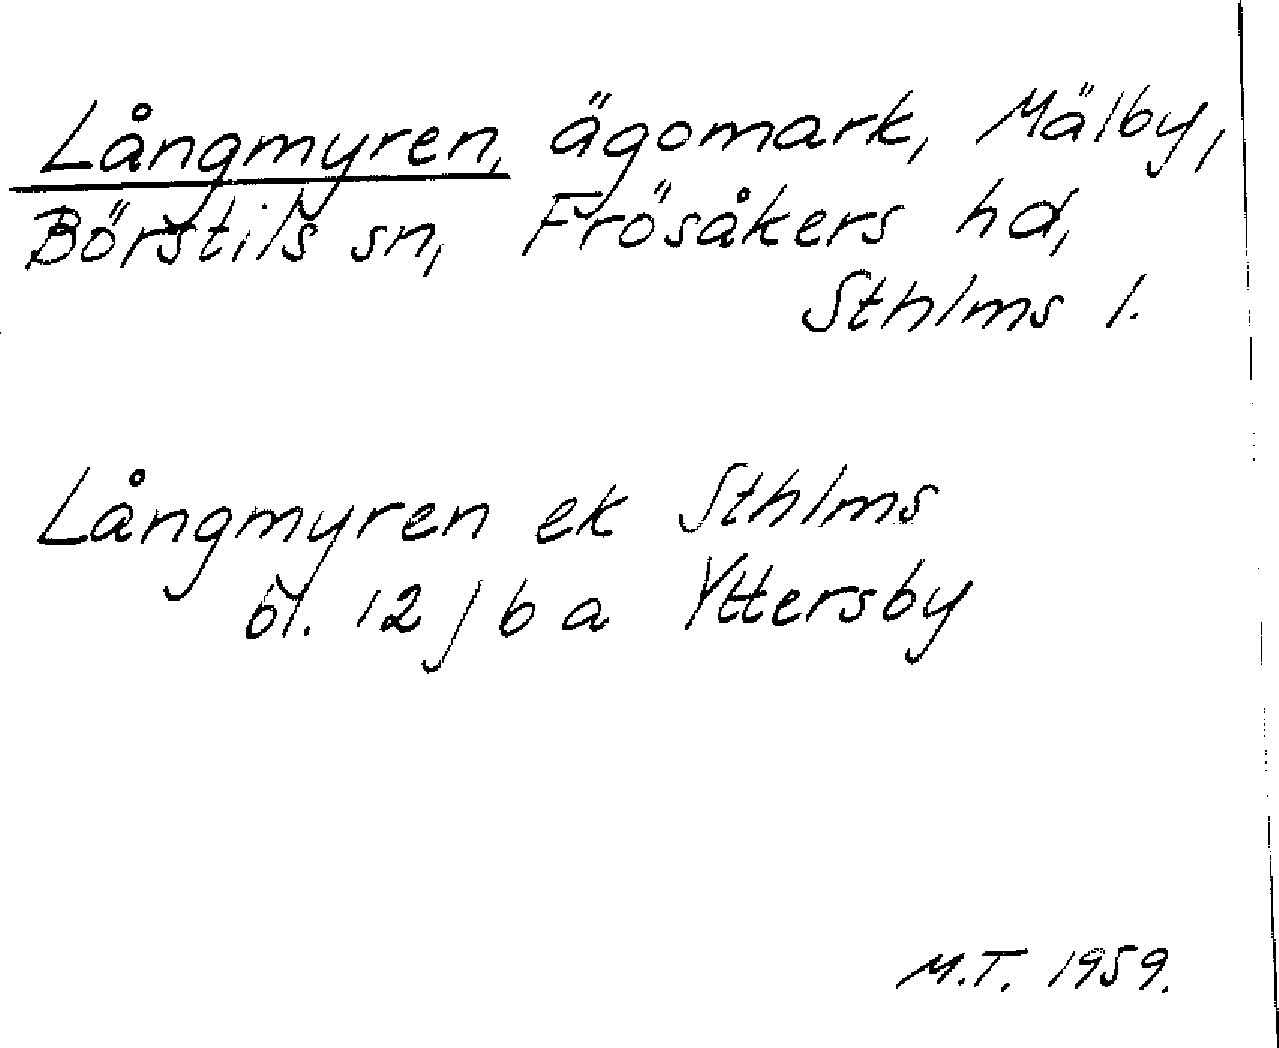 Långmyren, ägomark, Mälby,
Börstils sn, Frösåkers hd,
Sthlms l.
Långmyren ek Sthlms
bl. 12 j b a Yttersby
M.T. 1959.